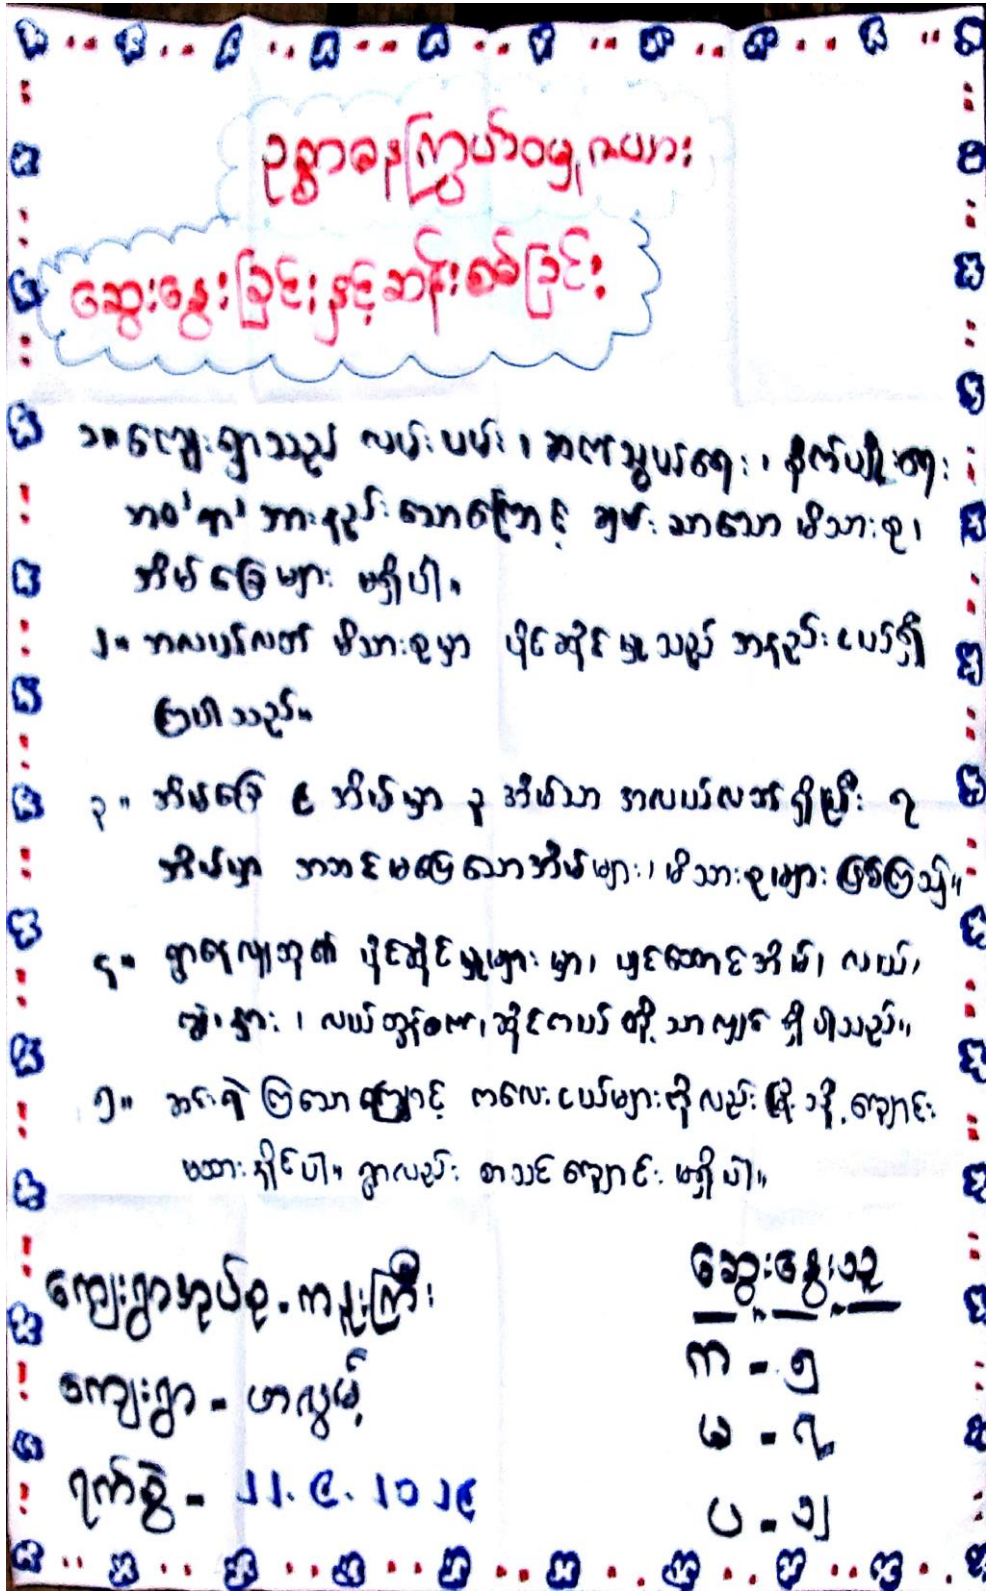 ဥစ္စာဓနကြွယ်ဝမှုဇယား
ဆွေးနွေးခြင်းနှင့်ဆန်းစစ်ခြင်း
၁။ ကျေးရွာသည် လမ်းပမ်း၊ ဆက်သွယ်ရေး၊ စိုက်ပျိုးရေး
အားနည်းသောကြောင့် ချမ်းသာသော မိသားစု၊
အိမ်ခြေများ မရှိပါ။
၂။ အလယ်လတ် မိသားစုမှာ ပိုင်ဆိုင်မှုသည် အနည်းငယ်ရှိ
ကြပါသည်။
၃။ အိမ်ခြေ ၉ အိမ်မှာ ၃ အိမ်သာ အလယ်လတ်ရှိပြီး ၇
အိမ်မှာ အဆင်မပြေသောအိမ်များ၊ မိသားစုများ ဖြစ်ကြသည်။
၄။ ရွာနေလူထု၏ ပိုင်ဆိုင်မှုများမှာ၊ ပျဉ်ထောင်အိမ်၊ လယ်၊
ကျွဲ၊ နွား၊ လယ်ထွန်စက်၊ ဆိုင်ကယ် တို့သာလျှင် ရှိပါသည်။
၅။ ဆင်းရဲကြသောကြောင့် ကလေးငယ်များကိုလည်း မြို့သို့ ကျောင်း
မထားနိုင်ပါ။ ရွာလည်း စာသင်ကျောင်း မရှိပါ။
ကျေးရွာအုပ်စု - ကနူးကြီး
ကျေးရွာ - ဟလွမ့်
ရက်စွဲ - ၂၂.၉.၂၀၂၄
ဆွေးနွေးသူ
က - ၅
မ - ၇
ပ - ၁၂